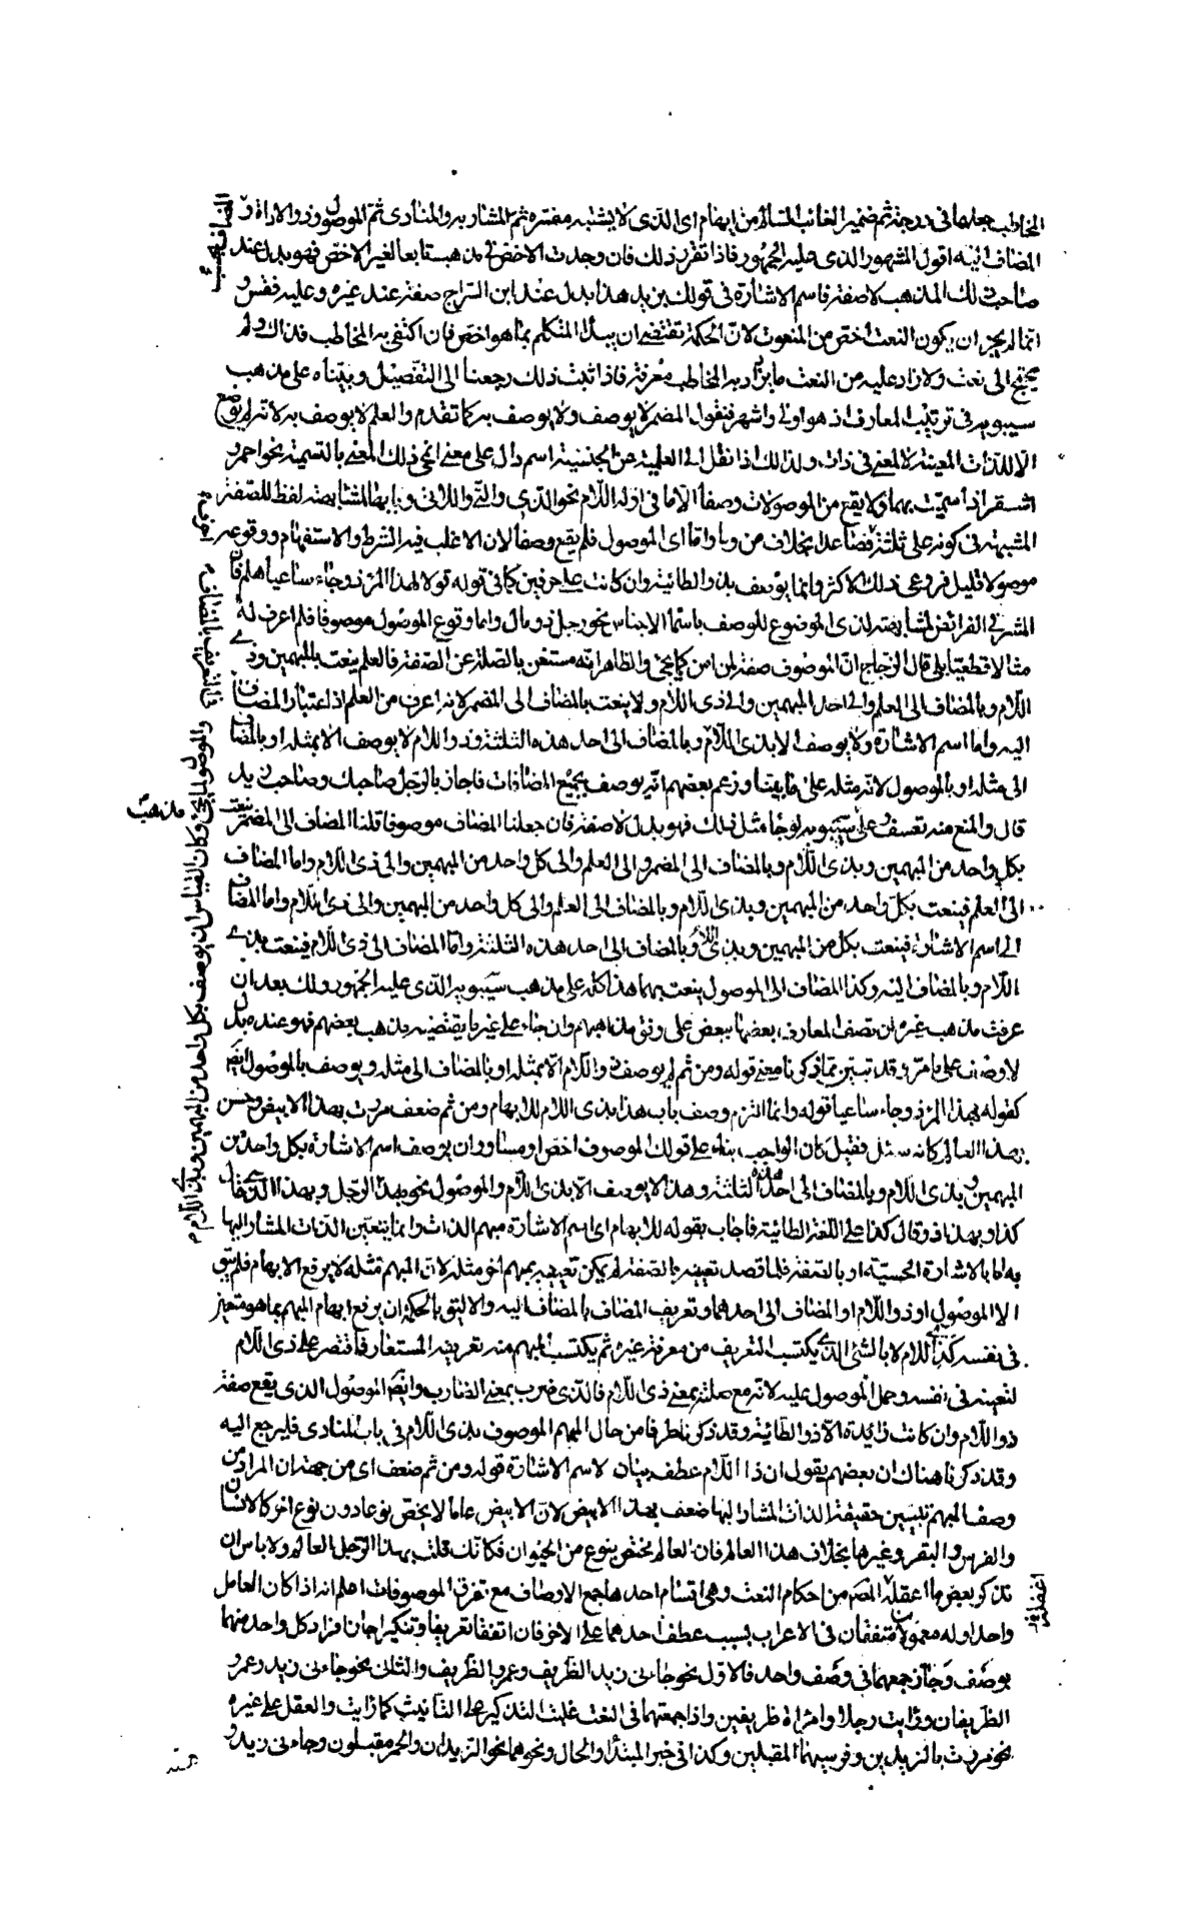 المخاطب جعلهما في درجة ثم ضمير الغائب السالم من ابهام اى الذى لا يشتبه مفسره ثم المشار به والمنادى ثم الموصول وذو الاداة و
المضاف اليه اقول المشهور الذى عليه الجمهور فاذا تقرر ذلك فان وجدت الاخص في مذهب تابعا لغير الاخص فهو بدل عند
صاحب ذلك المذهب لا صفة فاسم الاشارة في قولك بزيد هذا بدل عند ابن السراج صفة عند غيره وعليه فقس و
انما لم يجز ان يكون النعت اخص من المنعوت لان الحكمة تقتضى ان يبدأ المتكلم بما هو اخص فان اكتفى به المخاطب فذاك ولم
يحتج الى نعت ولا زاد عليه من النعت ما يزداد به المخاطب معرفة فاذا ثبت ذلك رجعنا الى التفصيل وبنيناه على مذهب
سيبويه في ترتيب المعارف اذ هو اولى واشهر فنقول المضمر لا يوصف ولا يوصف به كما تقدم والعلم لا يوصف به لانه لم يوضع
الا للذات المعينة لا لمعنى في ذات ولذلك اذا نقل الى العلمية عن الجنسية اسم دال على معنى انمحى ذلك المعنى بالتسمية نحو احمر و
اشقر اذا سميت بهما ولا يقع من الموصولات وصفا الا ما في اوله اللام نحو الذى والتى واللاتى وبابها لمشابهته لفظا للصفة
المشبهة في كونه على ثلثة فصاعدا بخلاف من وما واما اى الموصول فلم يقع وصفا لان الاغلب فيه الشرط والاستفهام ووقوعه
موصولا قليل فروعى ذلك الاكثر وانما يوصف بذو الطائية وان كانت على حرفين كما في قوله قولا لهذا المرء ذو جاء ساعيا هلم فان
المشرفى الفرائض لمشابهته لذى الموضوع للوصف باسماء الاجناس نحو رجل ذو مال واما وقوع الموصول موصوفا فلم اعرف له
مثالا قطعيا بلى قال الزجاج ان الموفون صفة لمن امن كما يجئ والظاهر انه مستغن بالصلة عن الصفة فالعلم ينعت بالمبهمين وذى
اللام وبالمضاف الى العلم والى احد المبهمين والى ذى اللام ولا ينعت بالمضاف الى المضمر لانه اعرف من العلم اذ اعتبار المضاف
اليه واما اسم الاشارة فلا يوصف الا بذى اللام وبالمضاف الى احد هذه الثلثة وذو اللام لا يوصف الا بمثله او بالمضاف
الى مثله او بالموصول لانه مثله على ما بينا وزعم بعضهم انه يوصف بجميع المضافات فاجاز بالرجل صاحبك وصاحب زيد
قال والمنع منه تعسف وعلى مذهب سيبويه لو جاء مثل ذلك فهو بدل لا صفة فان جعلنا المضاف موصوفا قلنا المضاف الى المضمر ينعت
بكل واحد من المبهمين وبذى اللام وبالمضاف الى المضمر والى العلم والى كل واحد من المبهمين والى ذى اللام واما المضاف
الى العلم فينعت بكل واحد من المبهمين وبذى اللام وبالمضاف الى العلم والى كل واحد من المبهمين والى ذى اللام واما المضاف
الى اسم الاشارة فينعت بكل من المبهمين وبذى اللام وبالمضاف الى احد هذه الثلثة واما المضاف الى ذى اللام فينعت بذى
اللام وبالمضاف اليه وكذا المضاف الى الموصول ينعت بهما هذا كله على مذهب سيبويه الذى عليه الجمهور ولك بعد ان
عرفت مذهب غيره ان تصف المعارف بعضها ببعض على وفق مذاهبهم وان جاء على غير ما يقتضيه مذهب بعضهم فهو عنده بدل
لا وصف على ما مر وقد تبين بما ذكرنا معنى قوله ومن ثم لم يوصف ذو اللام الا بمثله او بالمضاف الى مثله ويوصف بالموصول ايضا
كقوله لهذا المرء ذو جاء ساعيا قوله وانما التزم وصف باب هذا بذى اللام للابهام ومن ثم ضعف مررت بهذا الابيض وحسن
بهذا العالم كانه سئل فقيل كان الواجب بناء على قولك الموصوف اخص او مساو ان يوصف اسم الاشارة بكل واحد من
المبهمين وبذى اللام وبالمضاف الى احد هذه الثلثة وهذا لا يوصف الا بذى اللام والموصول نحو بهذا الرجل وبهذا الذى قال
كذا وبهذا ذو قال كذا على اللغة الطائية فاجاب بقوله للابهام اى اسم الاشارة مبهم الذات وانما يتعين الذات المشار اليها
به اما بالاشارة الحسية او بالصفة فلما قصد تعيينه بالصفة لم يكن تعيينه بمبهم اخر مثله لان المبهم مثله لا يرفع الابهام فلم يبق
الا الموصول او ذو اللام او المضاف الى احدهما وتعريف المضاف بالمضاف اليه والاليق بالحكمة ان يرفع ابهام المبهم بما هو متعين
في نفسه كذى اللام لا بالشئ الذى يكتسب التعريف من معرفة غيره ثم يكتسب المبهم منه تعريفه المستعار فاقتصر على ذى اللام
لتعينه في نفسه وحمل الموصول عليه لانه مع صلته بمعنى ذى اللام فالذى ضرب بمعنى الضارب وايضا الموصول الذى يقع صفة
ذو اللام وان كانت زائدة الا ذو الطائية وقد ذكرنا طرفا من حال المبهم الموصوف بذى اللام في باب المنادى فليرجع اليه
وقد ذكرنا هناك ان بعضهم يقول ان ذا اللام عطف بيان لاسم الاشارة قوله ومن ثم ضعف اى من جهة ان المراد من
وصف المبهم تبيين حقيقة الذات المشار اليها ضعف بهذا الابيض لان الابيض عام لا يخص نوعا دون نوع اخر كالانسان
والفرس والبقر وغيرها بخلاف هذا العالم فان العالم مختص بنوع من الحيوان فكانك قلت بهذا الرجل العالم ولا باس ان
نذكر بعض ما اغفله المصنف من احكام النعت وهى اقسام احدها جمع الاوصاف مع تفرق الموصوفات اعلم انه اذا كان العامل
واحدا وله معمولان متفقان في الاعراب بسبب عطف احدهما على الاخر فان اتفقا تعريفا وتنكيرا جاز افراد كل واحد منهما
بوصف وجاز جمعهما في وصف واحد فالاول نحو جاءنى زيد الظريف وعمرو الظريف والثانى نحو جاءنى زيد وعمرو
الظريفان ورايت رجلا وامراة ظريفين واذا جمعتهما في النعت غلبت التذكير على التانيث كما رايت والعقل على غيره
نحو مررت بالزيدين وفرسيهما المقبلين وكذا في خبر المبتدأ والحال ونحوهما نحو الزيدان والحمر مقبلون وجاءنى زيد و
والموصول لما يجئ وكان القياس ان يوصف بكل واحد من المبهمين وبذى اللام
مذهب